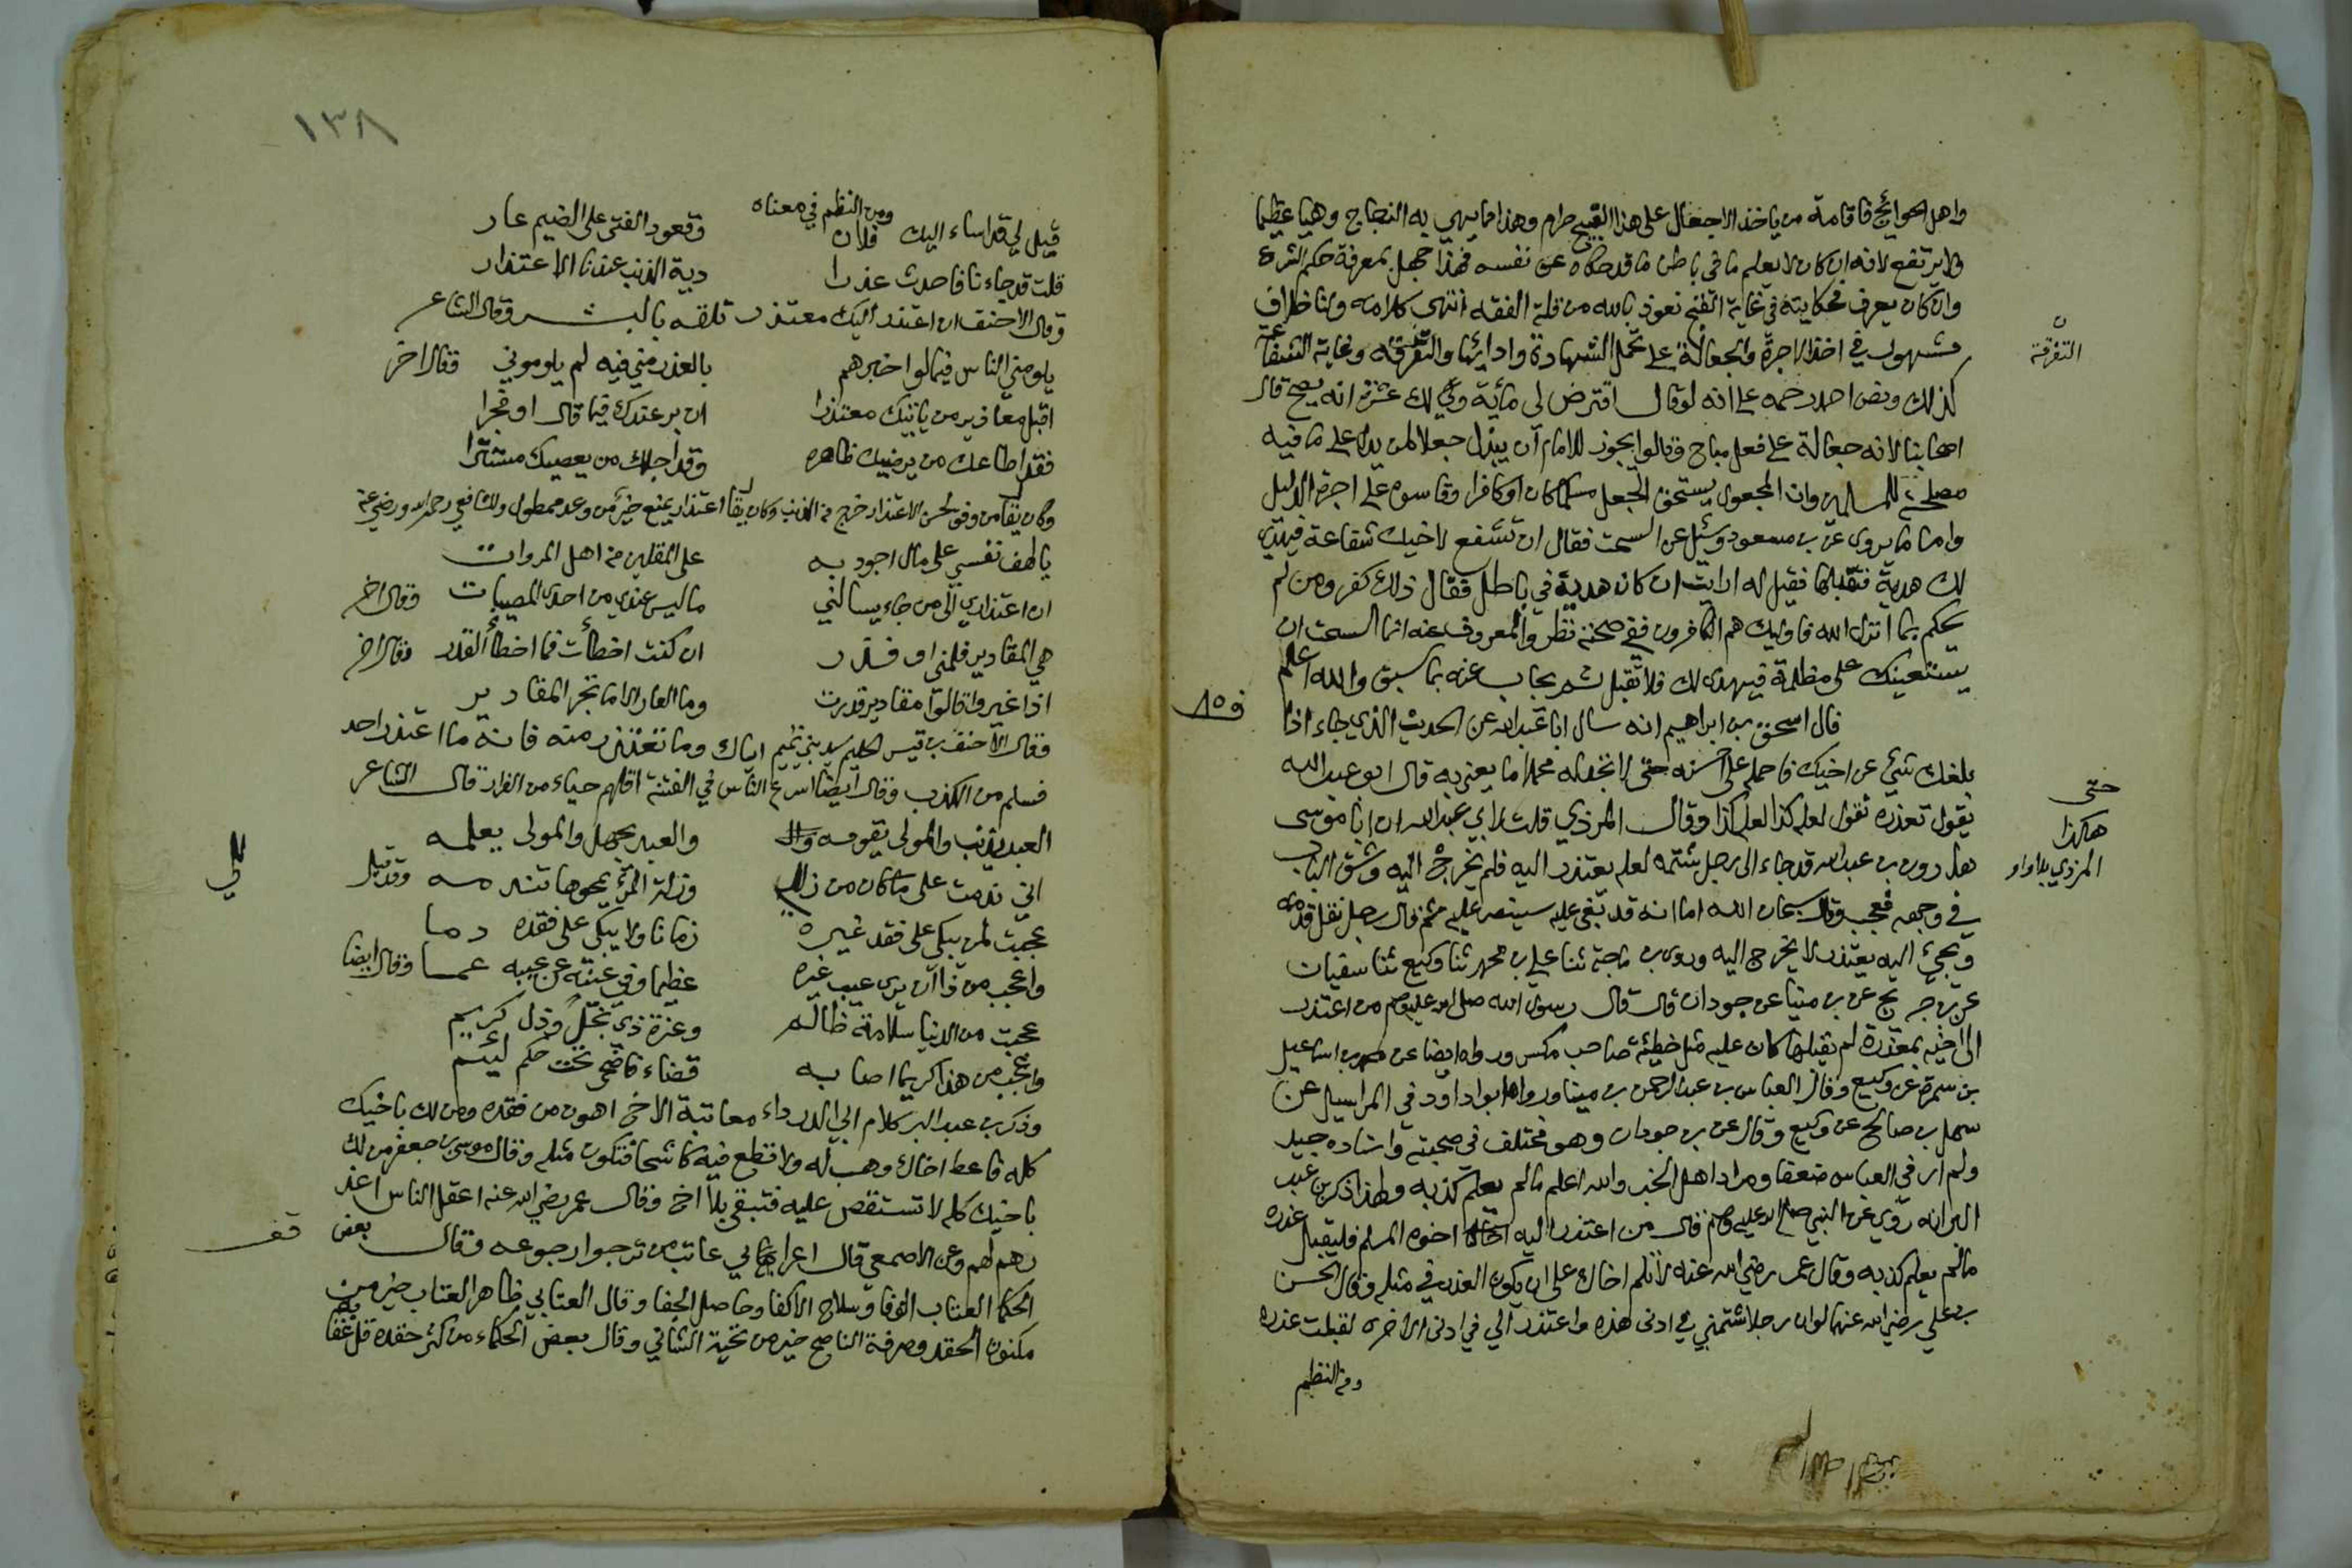 واهل الحوائج فاقامة من ياخذ الاجعال على هذا القبيح حرام وهذا مما ينهى به
ولا يرتفع لانه ان كان لا يعلم ما في باطن ما قد حكاه عن نفسه فهذا جهل بمعرفة حكم الشرع
وان كان يعرف فحكايته في غاية القبح نعوذ بالله من قلة الفقه انتهى كلامه ولنا خلاف
مشهور في اخذ الاجرة والجعالة على تحمل الشهادة وادائها والتفرقة وغاية الشفاعة
التفرقة
كذلك ونص احمد رحمه على انه لو قال اقترض لي مائة ولك عشرة انه يصح قال
اصحابنا لانه جعالة على فعل مباح وقالوا يجوز للامام ان يبذل جعلا لمن يدل على ما فيه
مصلحة للمسلمين وان المجعول يستحق الجعل مسلما كان او كافرا وقاسوه على اجرة الدليل
واما ما يروى عن بن مسعود وسئل عن السحت فقال ان تشفع لاخيك شفاعة فيهدي
لك هدية فتقبلها فقيل له ارايت ان كان هدية في باطل فقال ذلك كفر ومن لم
يحكم بما انزل الله فاولئك هم الكافرون ففي صحته نظر والمعروف عنه انما السحت ان
يستعينك على مظلمة فيهدي لك فلا تقبل ثم يجاب عنه بما سبق والله اعلم
قال اسحق بن ابراهيم انه سال ابا عبد الله عن الحديث الذي جاء اذا
بلغك شيئ عن اخيك فاحمله على احسنه حتى لا تجد له محملا ما يعني به قال ابو عبد الله
حتى
يقول تعذره تقول لعله كذا لعله كذا وقال المرذي قلت لابي عبد الله ان ابا موسى
هاكذا
هارون بن عبد الله قد جاء الى رجل شتمه لعله يعتذر اليه فلم يخرج اليه وشق الباب
المرذي بلا واو
في وجهه فعجب وقال سبحان الله اما انه قد بغى عليه سينصر عليه ثم قال رجل نقل قدمه
ويجئ اليه يعتذر لا يخرج اليه وروى بن ماجة ثنا علي بن محمد ثنا وكيع ثنا سفيان
عن بن جريج عن بن مينا عن جودان قال قال رسول الله صلى الله عليه وسلم من اعتذر
الى اخيه بمعذرة لم يقبلها كان عليه مثل خطيئة صاحب مكس ورواه ايضا عن محمد بن اسماعيل
بن سمرة عن وكيع وقال العباس بن عبد الرحمن بن مينا ورواه ابو داود في المراسيل عن
سهل بن صالح عن وكيع وقال عن بن جودان وهو مختلف في صحبته واسناده جيد
ولم ار في العباس ضعفا ومراد اهل الخبر والله اعلم ما لم يعلم كذبه ولهذا ذكر بن عبد
البر انه روي عن النبي صلى الله عليه وسلم قال من اعتذر اليه اخوه المسلم فليقبل عذره
ما لم يعلم كذبه وقال عمر رضي الله عنه لا تلم اخاك على ان يكون العذر في مثله وقال الحسن
بن علي رضي الله عنهما لو ان رجلا شتمني في اذني هذه واعتذر الي في اذني الاخرى لقبلت عذره
ومن النظم
١٣٨
ومن النظم في معناه
قيل لي قد اساء اليك فلان وقعود الفتى على الضيم عار
قلت قد جاءنا فاحدث عذرا دية الذنب عندنا الاعتذار
وقال الاحنف ان اعتذر اليك معتذر تلقه بالبشر وقال الشاعر
يلومني الناس فيما لو اخبرهم بالعذر مني فيه لم يلوموني وقال اخر
اقبل معاذير من ياتيك معتذرا ان بر عندك فيما قال او فجرا
فقد اطاعك من يرضيك ظاهره وقد اجلك من يعصيك مستترا
وكان يقال من وفق لحسن الاعتذار خرج من الذنب وكان يقال اعتذار يمنع خير من وعد ممطول وللشافعي رحمه الله ورضي عنه
يا لهف نفسي على مال اجود به على المقلين من اهل المروات
ان اعتذاري الى من جاء يسالني ما ليس عندي من احدى المصيبات وقال اخر
هي المقادير فلمني او فذر ان كنت اخطأت فما اخطأ القدر وقال اخر
اذا عيروا قالوا مقادير قدرت وما العار الا ما تجر المقادير
وقال الاحنف بن قيس الحليم سيد بني تميم اياك وما تعتذر منه فانه ما اعتذر احد
فسلم من الكذب وقال ايضا اسرع الناس في الفتنة اقلهم حياء من الفرار قال الشاعر
العبد يذنب والمولى يقومه والعبد يجهل والمولى يعلمه
اني ندمت على ما كان من زللي وزلة المرئ يمحوها تندمه وقد قيل
للي
عجبت لمن يبكي على فقد غيره زمانا ولا يبكي على فقده دما
واعجب من ذا ان يرى عيب غيره عظيما وفي عينه عن عيبه عما وقال ايضا
عجبت من الدنيا سلامة ظالم وعزة ذي بخل وذل كريم
واعجب من هذا كريما اصابه قضاء فاضحى تحت حكم لئيم
وذكر بن عبد البر كلام ابي الدرداء معاتبة الاخ اهون من فقده ومن لك باخيك
كله فاعط اخاك وهب له ولا تطع فيه كاشحا فتكون مثله وقال موسى بن جعفر من لك
باخيك كله لا تستقص عليه فتبقى بلا اخ وقال عمر رضي الله عنه اعقل الناس اعذر
هم لهم وعن الاصمعي قال اعرابي عاتب من ترجوا رجوعه وقال بعض
قف
الحكما العتاب الوفا وسلاح الاكفا وحاصل الجفا وقال العتابي ظاهر العتاب خير من
مكنون الحقد وصرفة الناصح خير من تحية الشاني وقال بعض الحكماء من كثر حقده قل